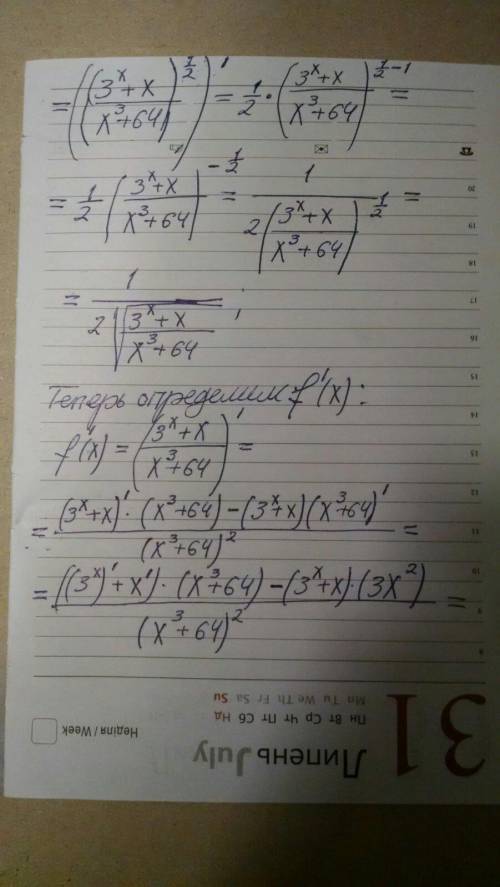 = (((3^x + x)/(x^3+64))^(1/2))' = 1/2 · ((3^x+x)/(x^3+64))^(1/2 - 1) =
= 1/2 ((3^x+x)/(x^3+64))^(-1/2) = 1/(2((3^x+x)/(x^3+64))^(1/2)) =
= 1/(2√((3^x+x)/(x^3+64))) ;
Теперь определим f'(x):
f'(x) = ((3^x+x)/(x^3+64))' =
= ((3^x+x)' · (x^3+64) - (3^x+x)(x^3+64)')/(x^3+64)^2 =
= (((3^x)' + x') · (x^3+64) - (3^x+x) · (3x^2))/(x^3+64)^2 =
31
Липень July
Пн Вт Ср Чт Пт Сб Нд
Mn Tu We Th Fr Sa Su
Неділя / Week
9
10
11
12
13
14
15
16
17
18
19
20